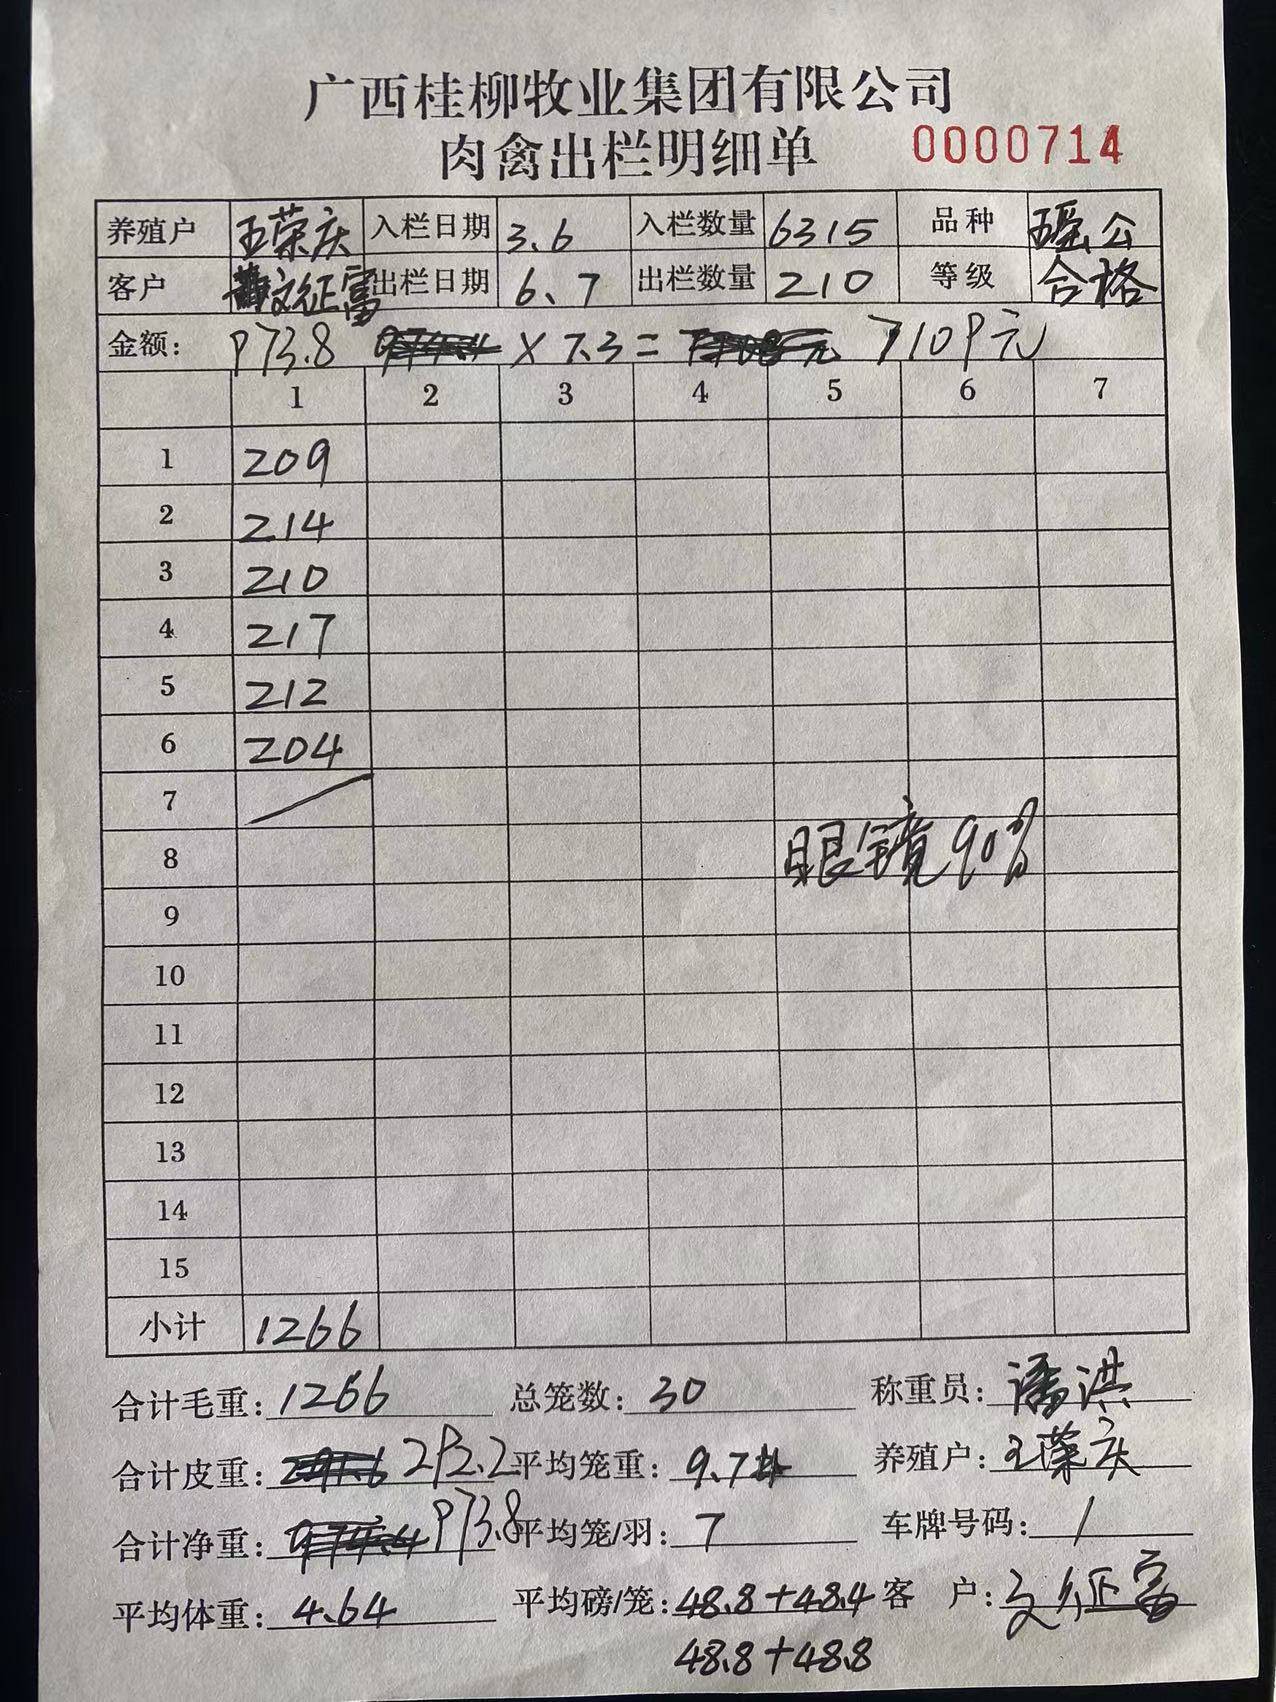 广西桂柳牧业集团有限公司
肉禽出栏明细单 0000714
养殖户 王荣庆 入栏日期 3.6 入栏数量 6315 品种 瑶公
客户 文征富 出栏日期 6.7 出栏数量 210 等级 合格
金额: 973.8 × 7.3 = 7109元
1 2 3 4 5 6 7
1 209
2 214
3 210
4 217
5 212
6 204
7
8 眼镜90%
9
10
11
12
13
14
15
小计 1266
合计毛重: 1266 总笼数: 30 称重员: 潘洪
合计皮重: 292.2 平均笼重: 9.74 养殖户: 王荣庆
合计净重: 973.8 平均笼/羽: 7 车牌号码: /
平均体重: 4.64 平均磅/笼: 48.8+48.4 客 户: 文征富
48.8+48.8